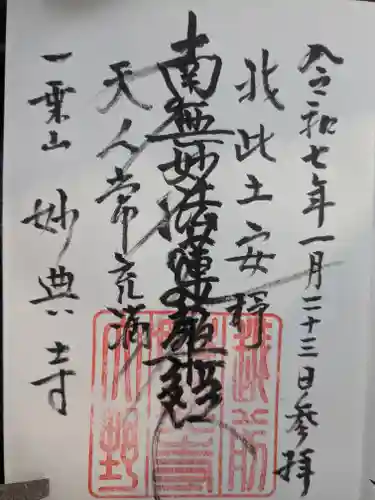 令和七年一月二十三日参拝
我此土安穏
南無妙法蓮華経
天人常充満
一乗山
妙典寺
越前
大野